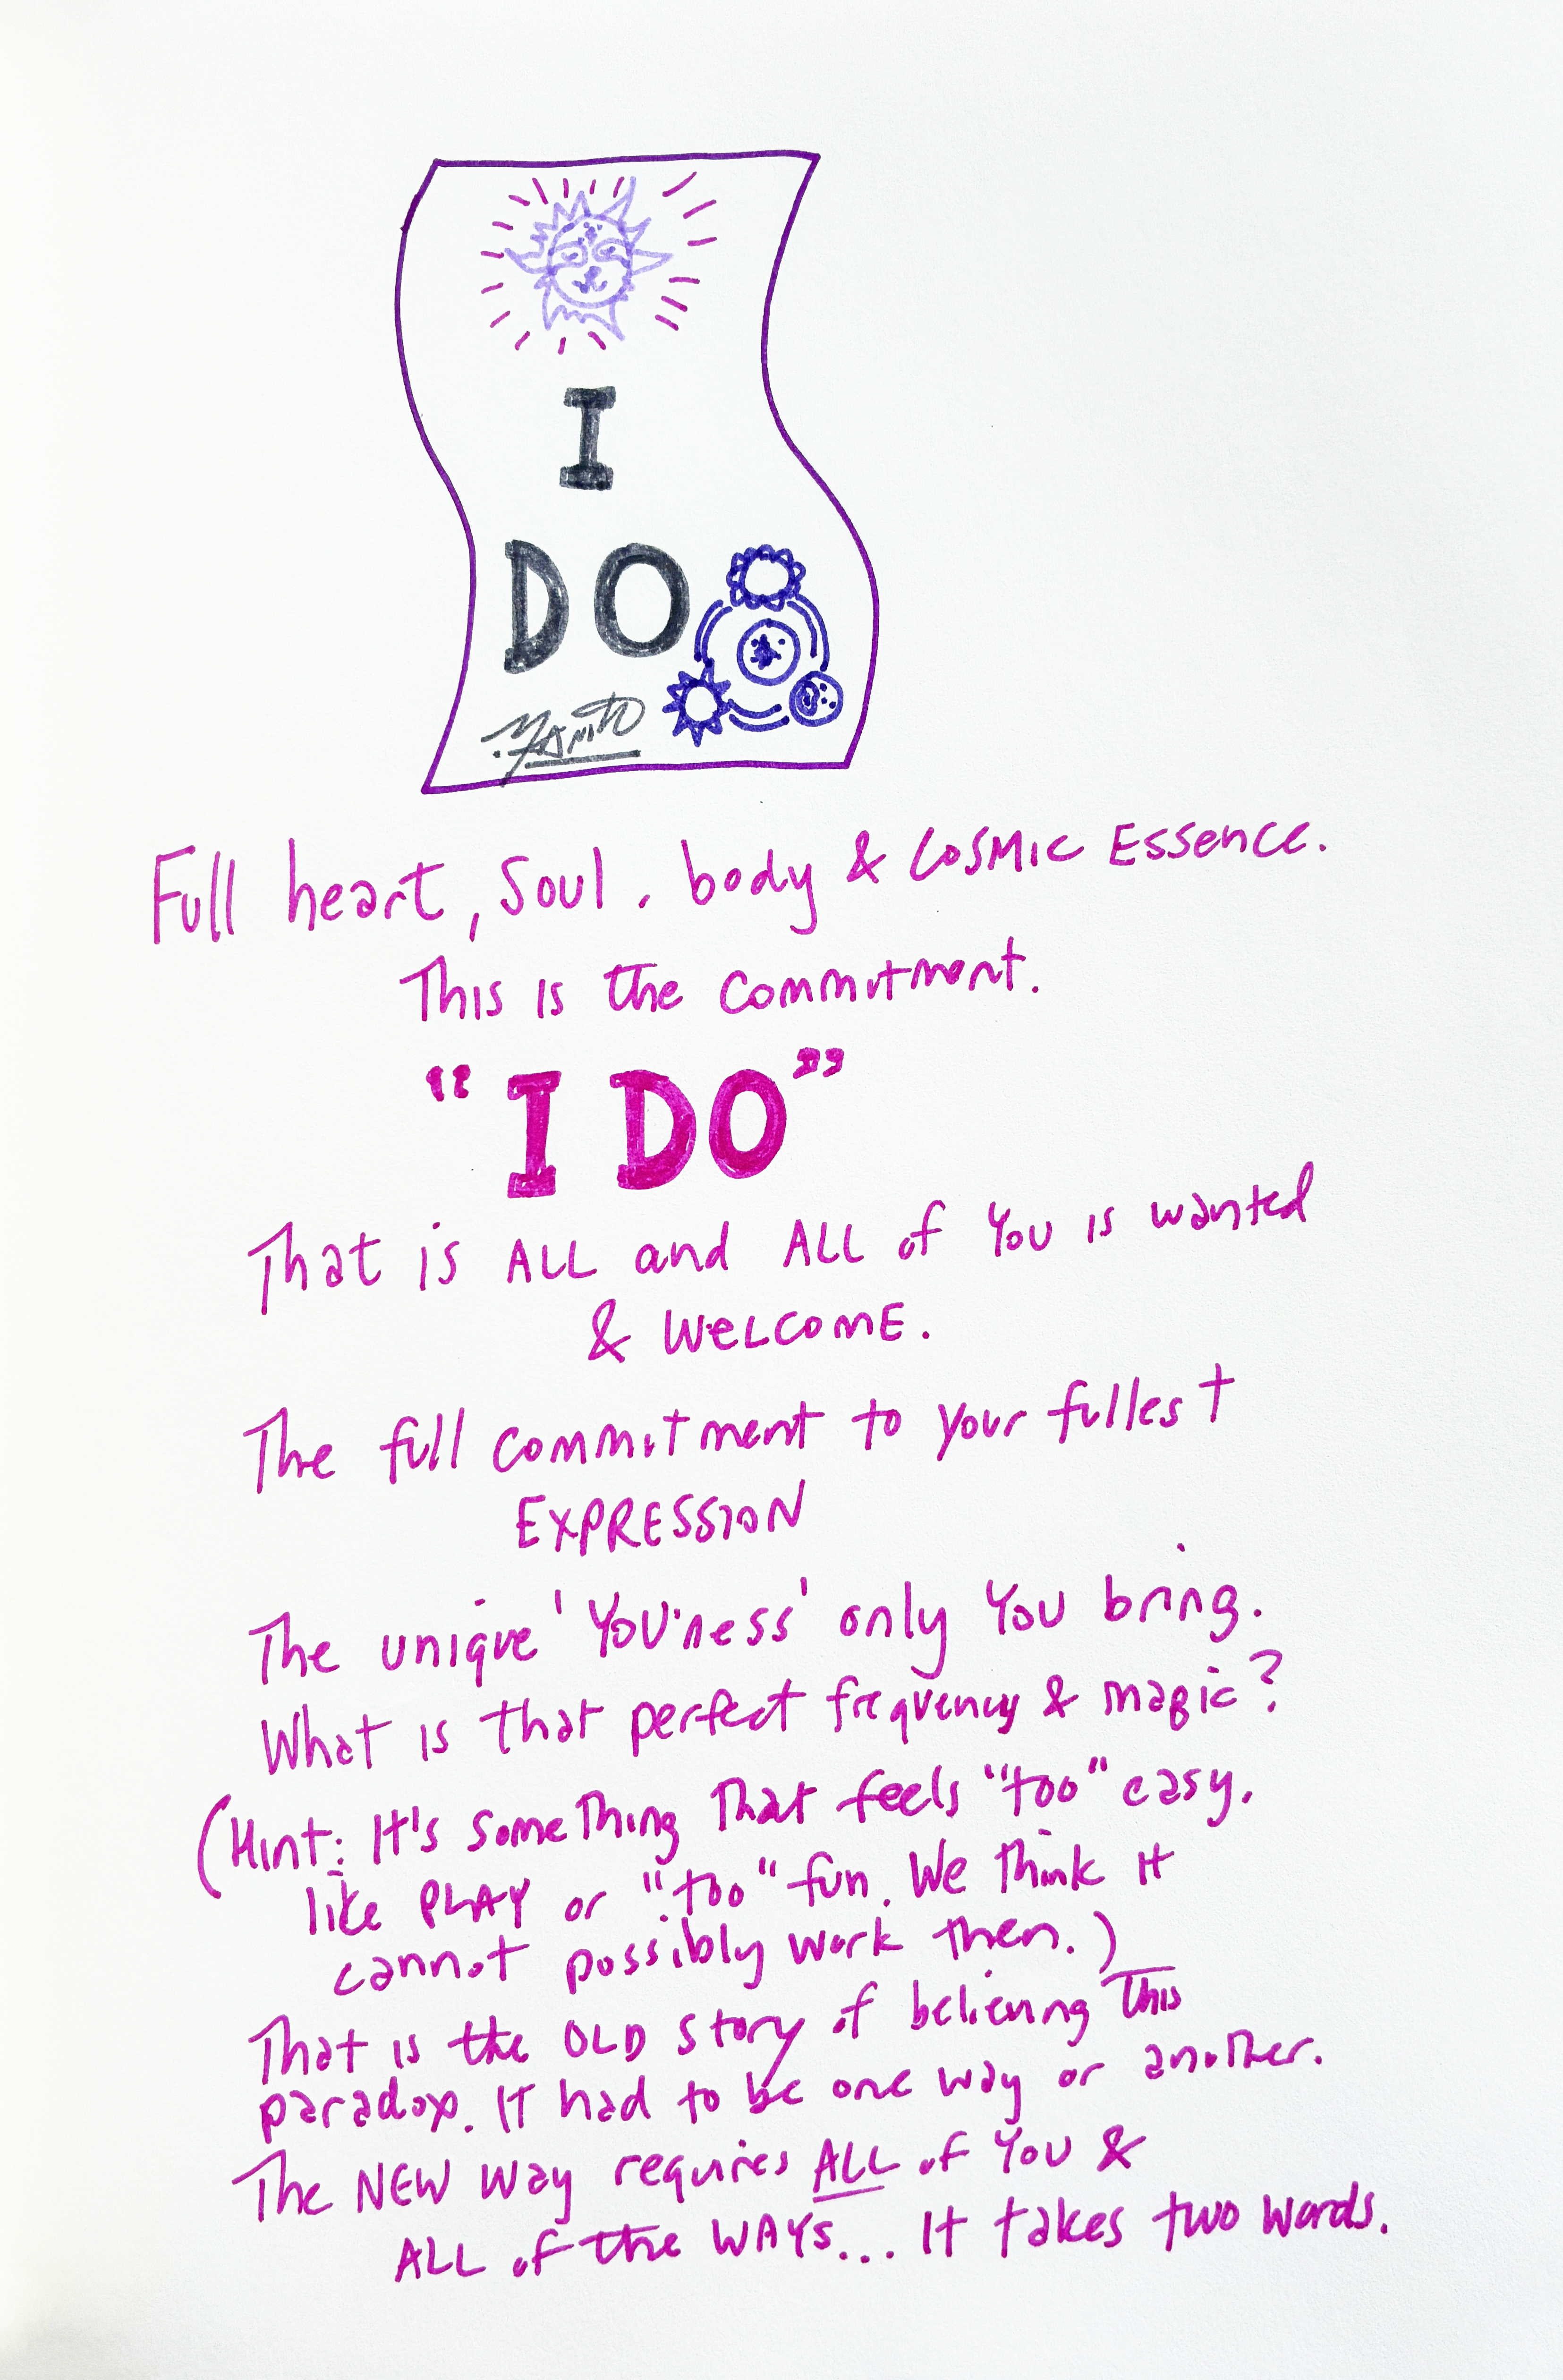 I
DO
Yanik
Full heart, Soul, body & COSMIC ESSENCE.
This is the commitment.
"I DO"
That is ALL and ALL of You is wanted
& WELCOME.
The full commitment to your fullest
EXPRESSION
The unique 'YOU'ness' only You bring.
What is that perfect frequency & magic?
(Hint: It's something that feels "too" easy,
like PLAY or "too" fun. We think it
cannot possibly work then.)
That is the OLD story of believing this
paradox. It had to be one way or another.
The NEW way requires ALL of You &
ALL of the WAYS... It takes two words.